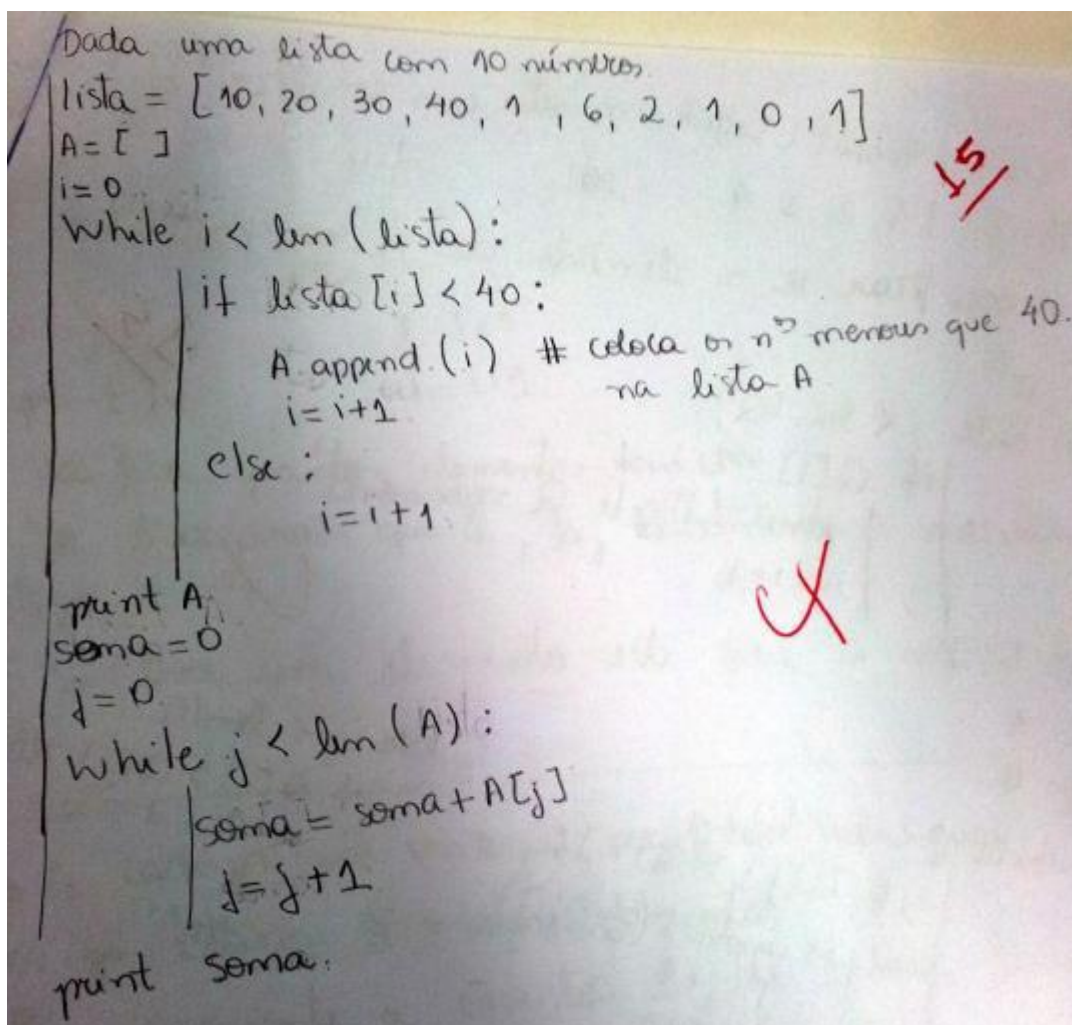 Dada uma lista com 10 números
lista = [10, 20, 30, 40, 1, 6, 2, 1, 0, 1]
A = [ ]
i = 0
15
while i < len (lista):
if lista [i] < 40:
A.append.(i) # coloca os nos menores que 40.
na lista A
i = i+1
else :
i = i + 1.
print A
soma = 0
j = 0
while j < len (A):
soma = soma + A[j]
j = j + 1
print soma.